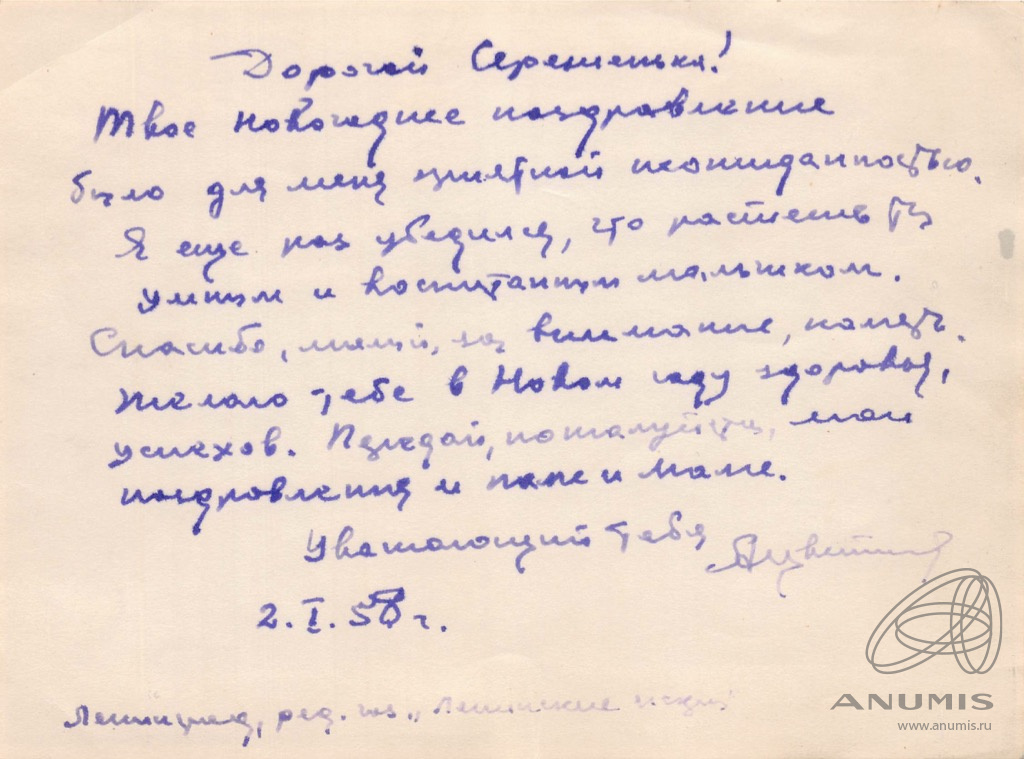 Дорогой Сереженька!
Твое новогоднее поздравление
было для меня приятной неожиданностью.
Я еще раз убедился, что растешь ты
умным и воспитанным мальчиком.
Спасибо, милый, за внимание, память.
Желаю тебе в Новом году здоровья,
успехов. Передай, пожалуйста, мои
поздравления и папе и маме.
Уважающий тебя
2.I.58 г.
Ленинград, ред. газ. „Ленинские искры"
ANUMIS
www.anumis.ru